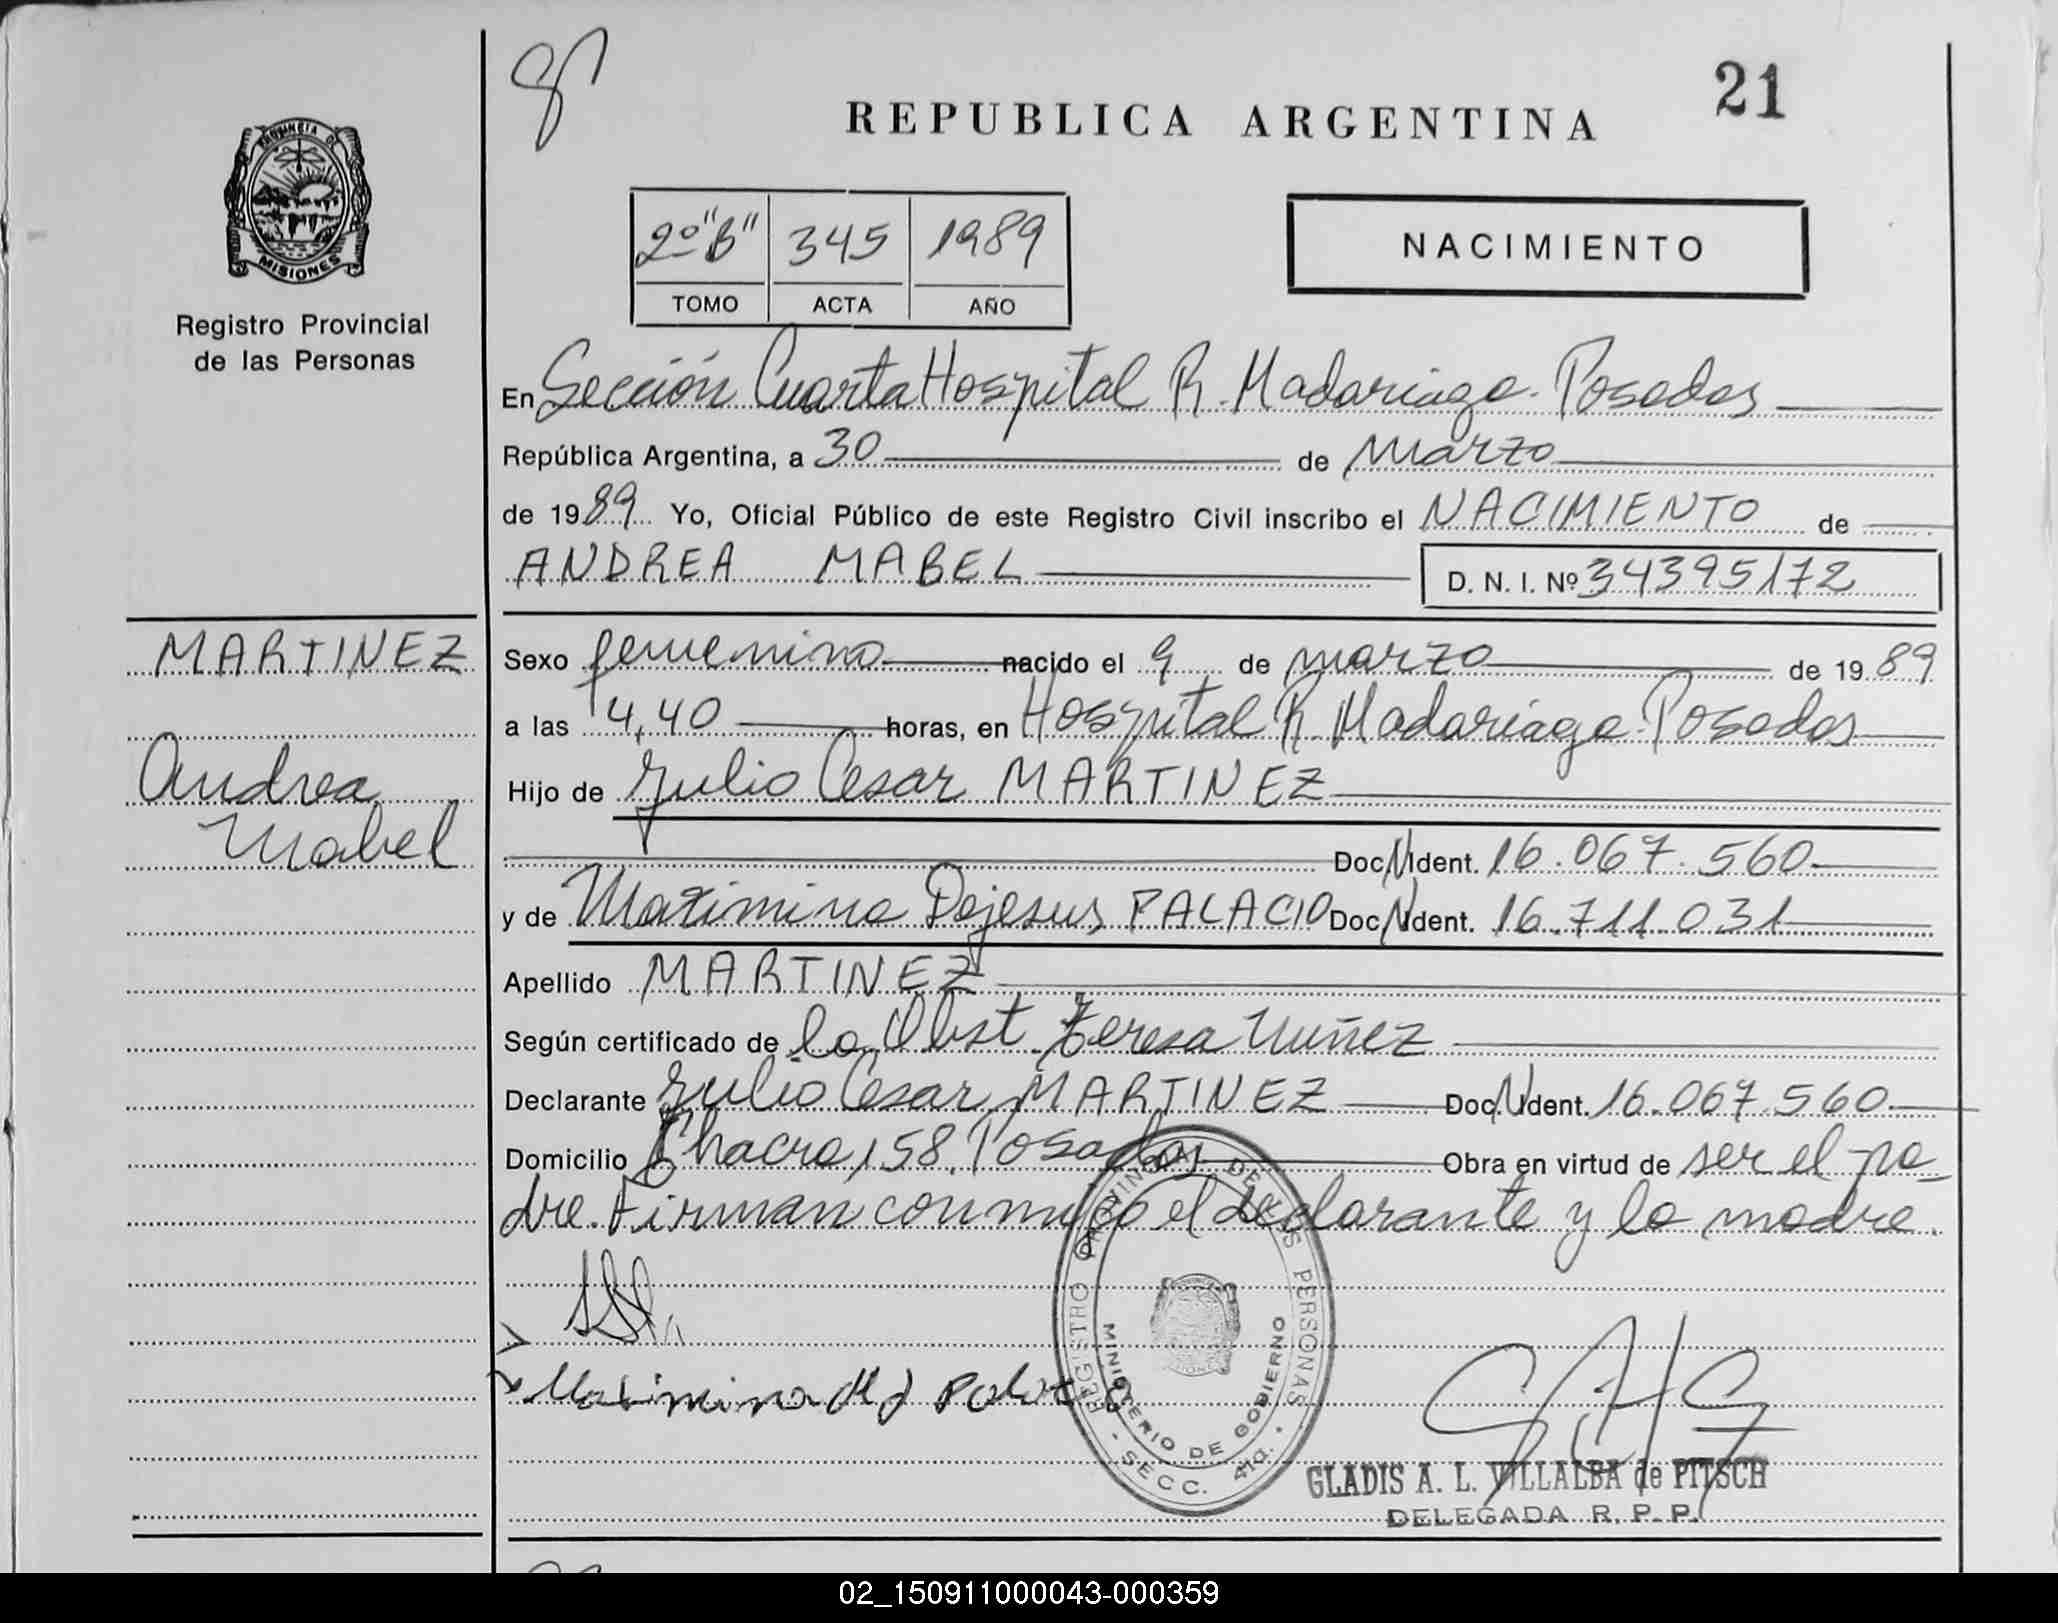 21
REPUBLICA ARGENTINA
PROVINCIA DE
MISIONES
Registro Provincial
de las Personas
2º "B" 345 1989
TOMO ACTA AÑO
NACIMIENTO
En Sección Cuarta Hospital R. Madariaga. Posadas
República Argentina, a 30 de marzo
de 1989 Yo, Oficial Público de este Registro Civil inscribo el NACIMIENTO de
ANDREA MABEL D. N. I. Nº 34395172
MARTINEZ
Andrea
Mabel
Sexo femenino nacido el 9 de marzo de 1989
a las 14,40 horas, en Hospital R. Madariaga. Posadas
Hijo de Julio Cesar MARTINEZ
Doc. N. Ident. 16.067.560
y de Maximina Dejesus PALACIO Doc. N. Ident. 16.711.031
Apellido MARTINEZ
Según certificado de la Obst. Teresa Nuñez
Declarante Julio Cesar MARTINEZ Doc. N. Ident. 16.067.560
Domicilio Chacra 158. Posadas Obra en virtud de ser el pa-
dre. Firman conmigo el declarante y la madre.
Maximina
REGISTRO PROVINCIAL DE LAS PERSONAS
MINISTERIO DE GOBIERNO
SECC. 4ta.
GLADIS A. L. VILLALBA de PITSCH
DELEGADA R. P. P.
02_150911000043-000359